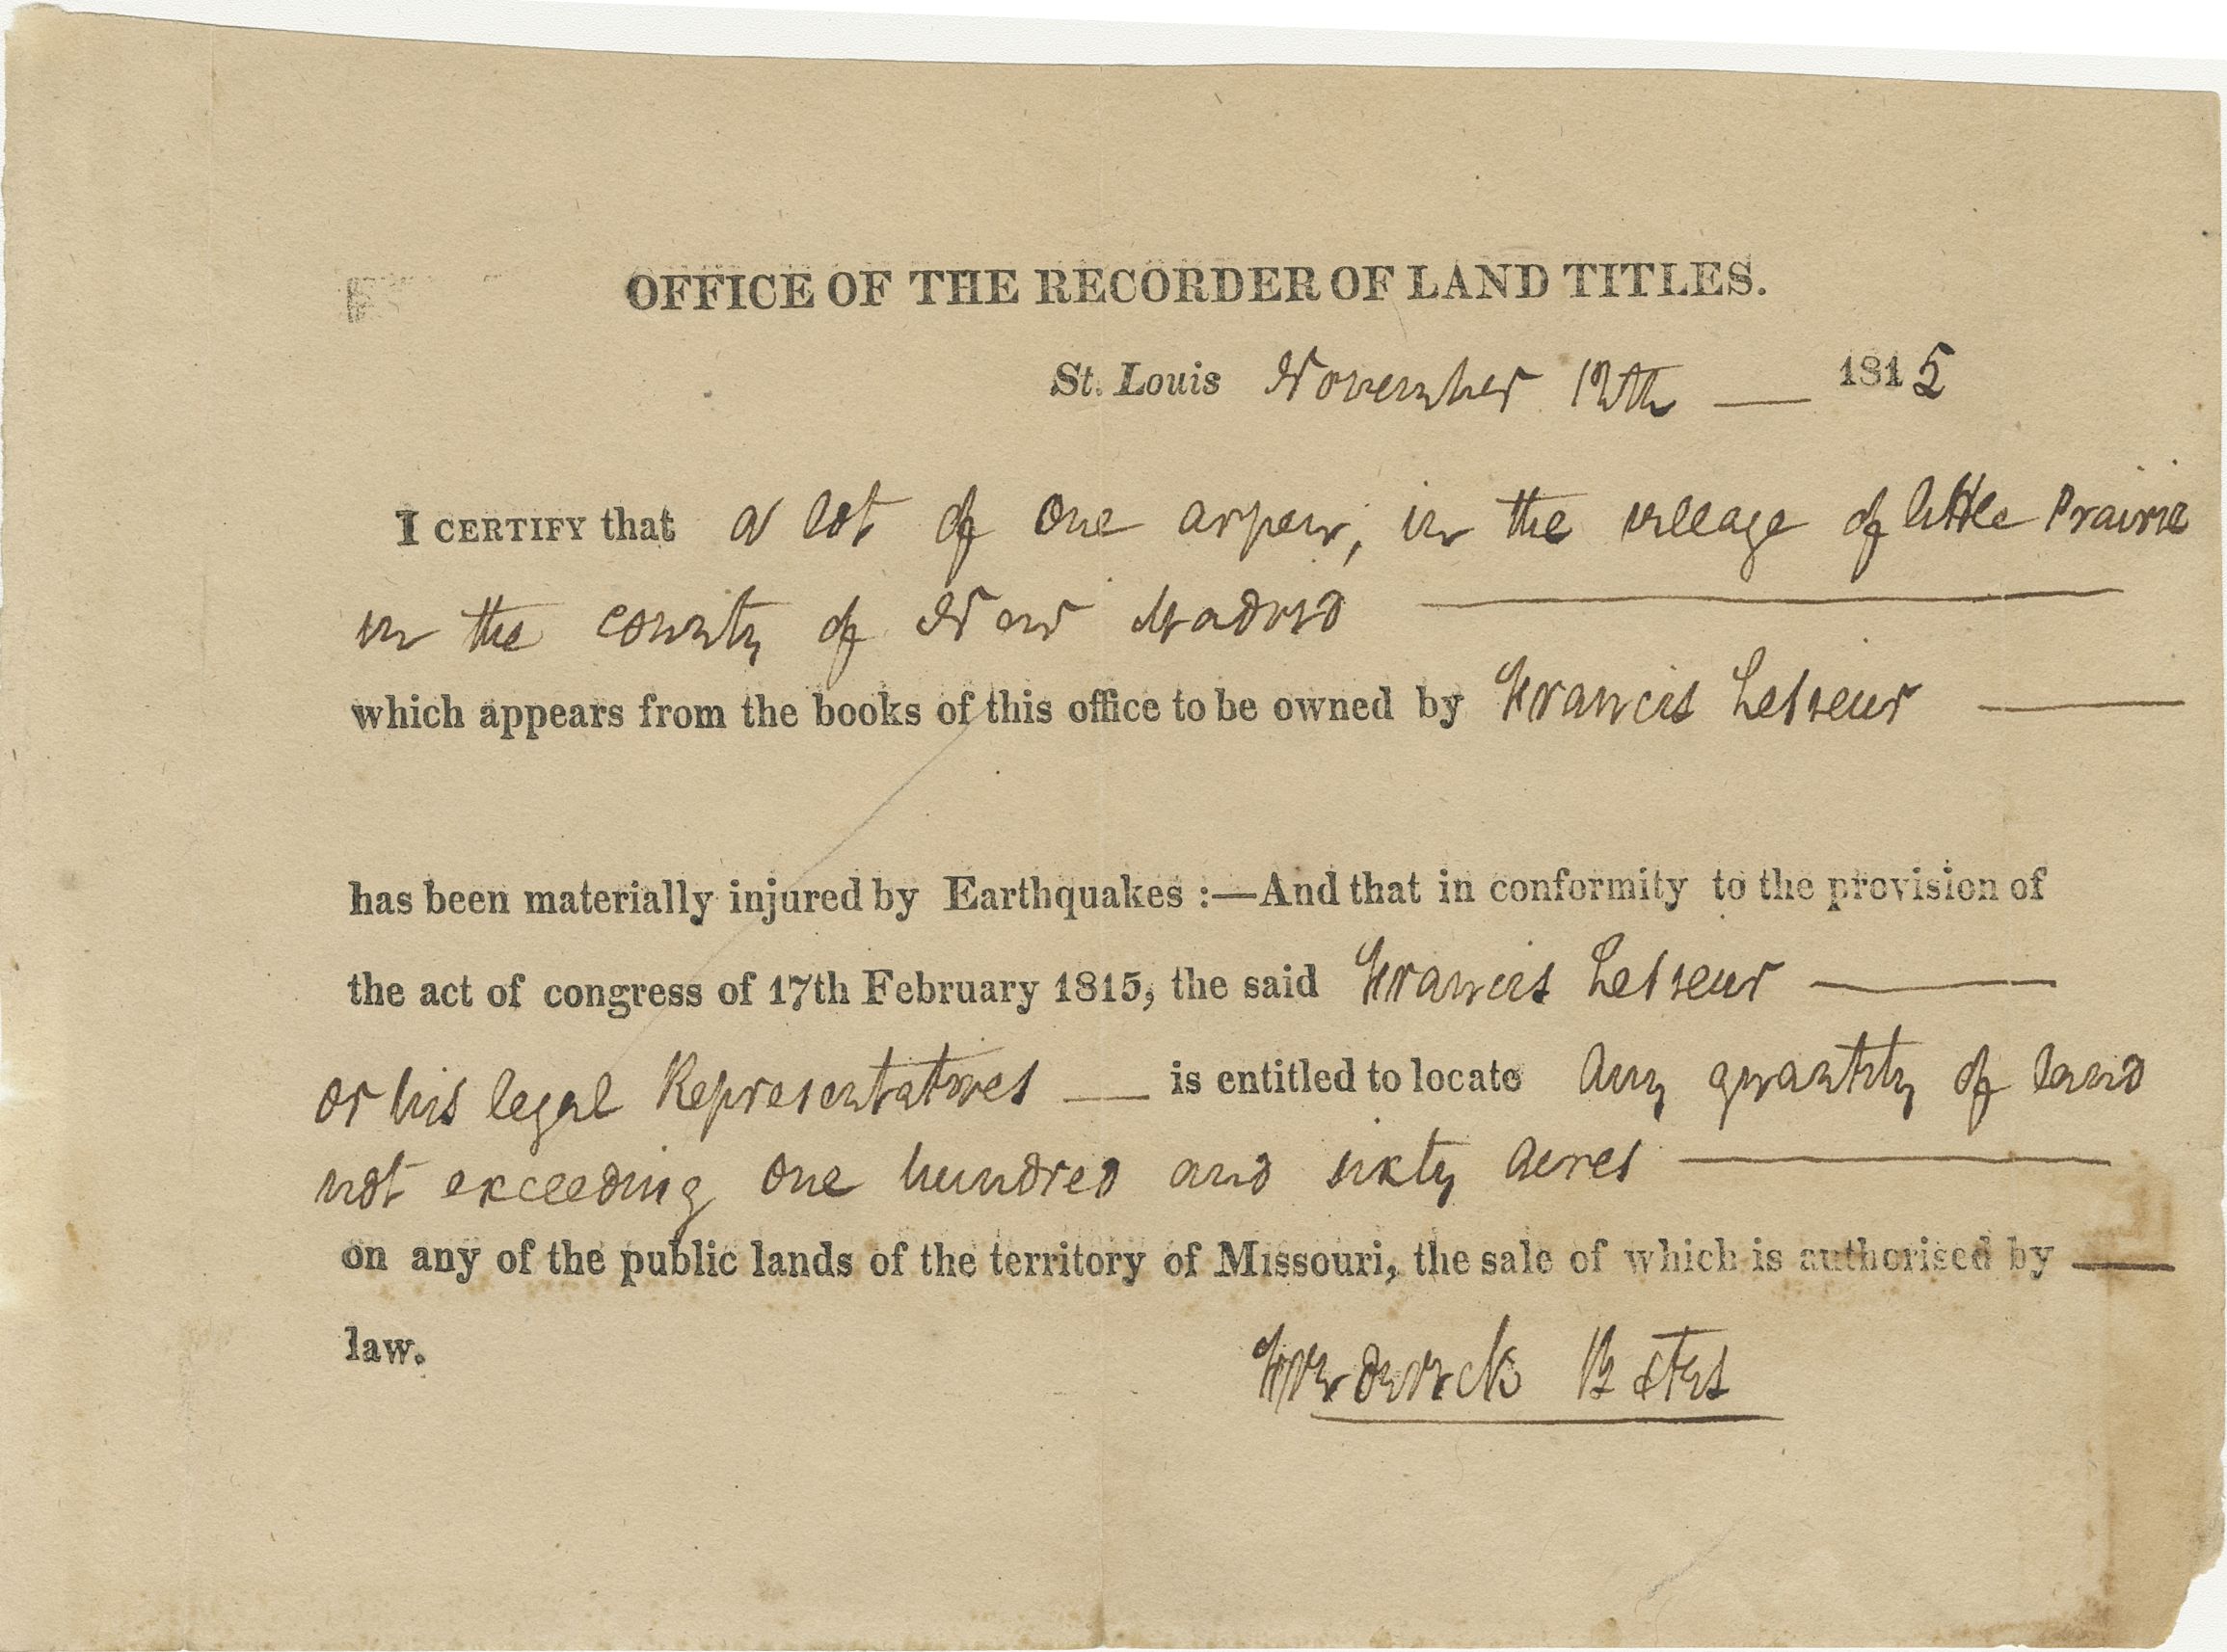 OFFICE OF THE RECORDER OF LAND TITLES.
St. Louis November 13th — 1815
I CERTIFY that a lot of one arpent, in the village of little Prairie
in the county of New Madrid
which appears from the books of this office to be owned by Francis Lesieur
has been materially injured by Earthquakes :—And that in conformity to the provision of
the act of congress of 17th February 1815, the said Francis Lesieur
or his legal Representatives — is entitled to locate any quantity of land
not exceeding one hundred and sixty acres
on any of the public lands of the territory of Missouri, the sale of which is authorised by
law.
Frederick Bates